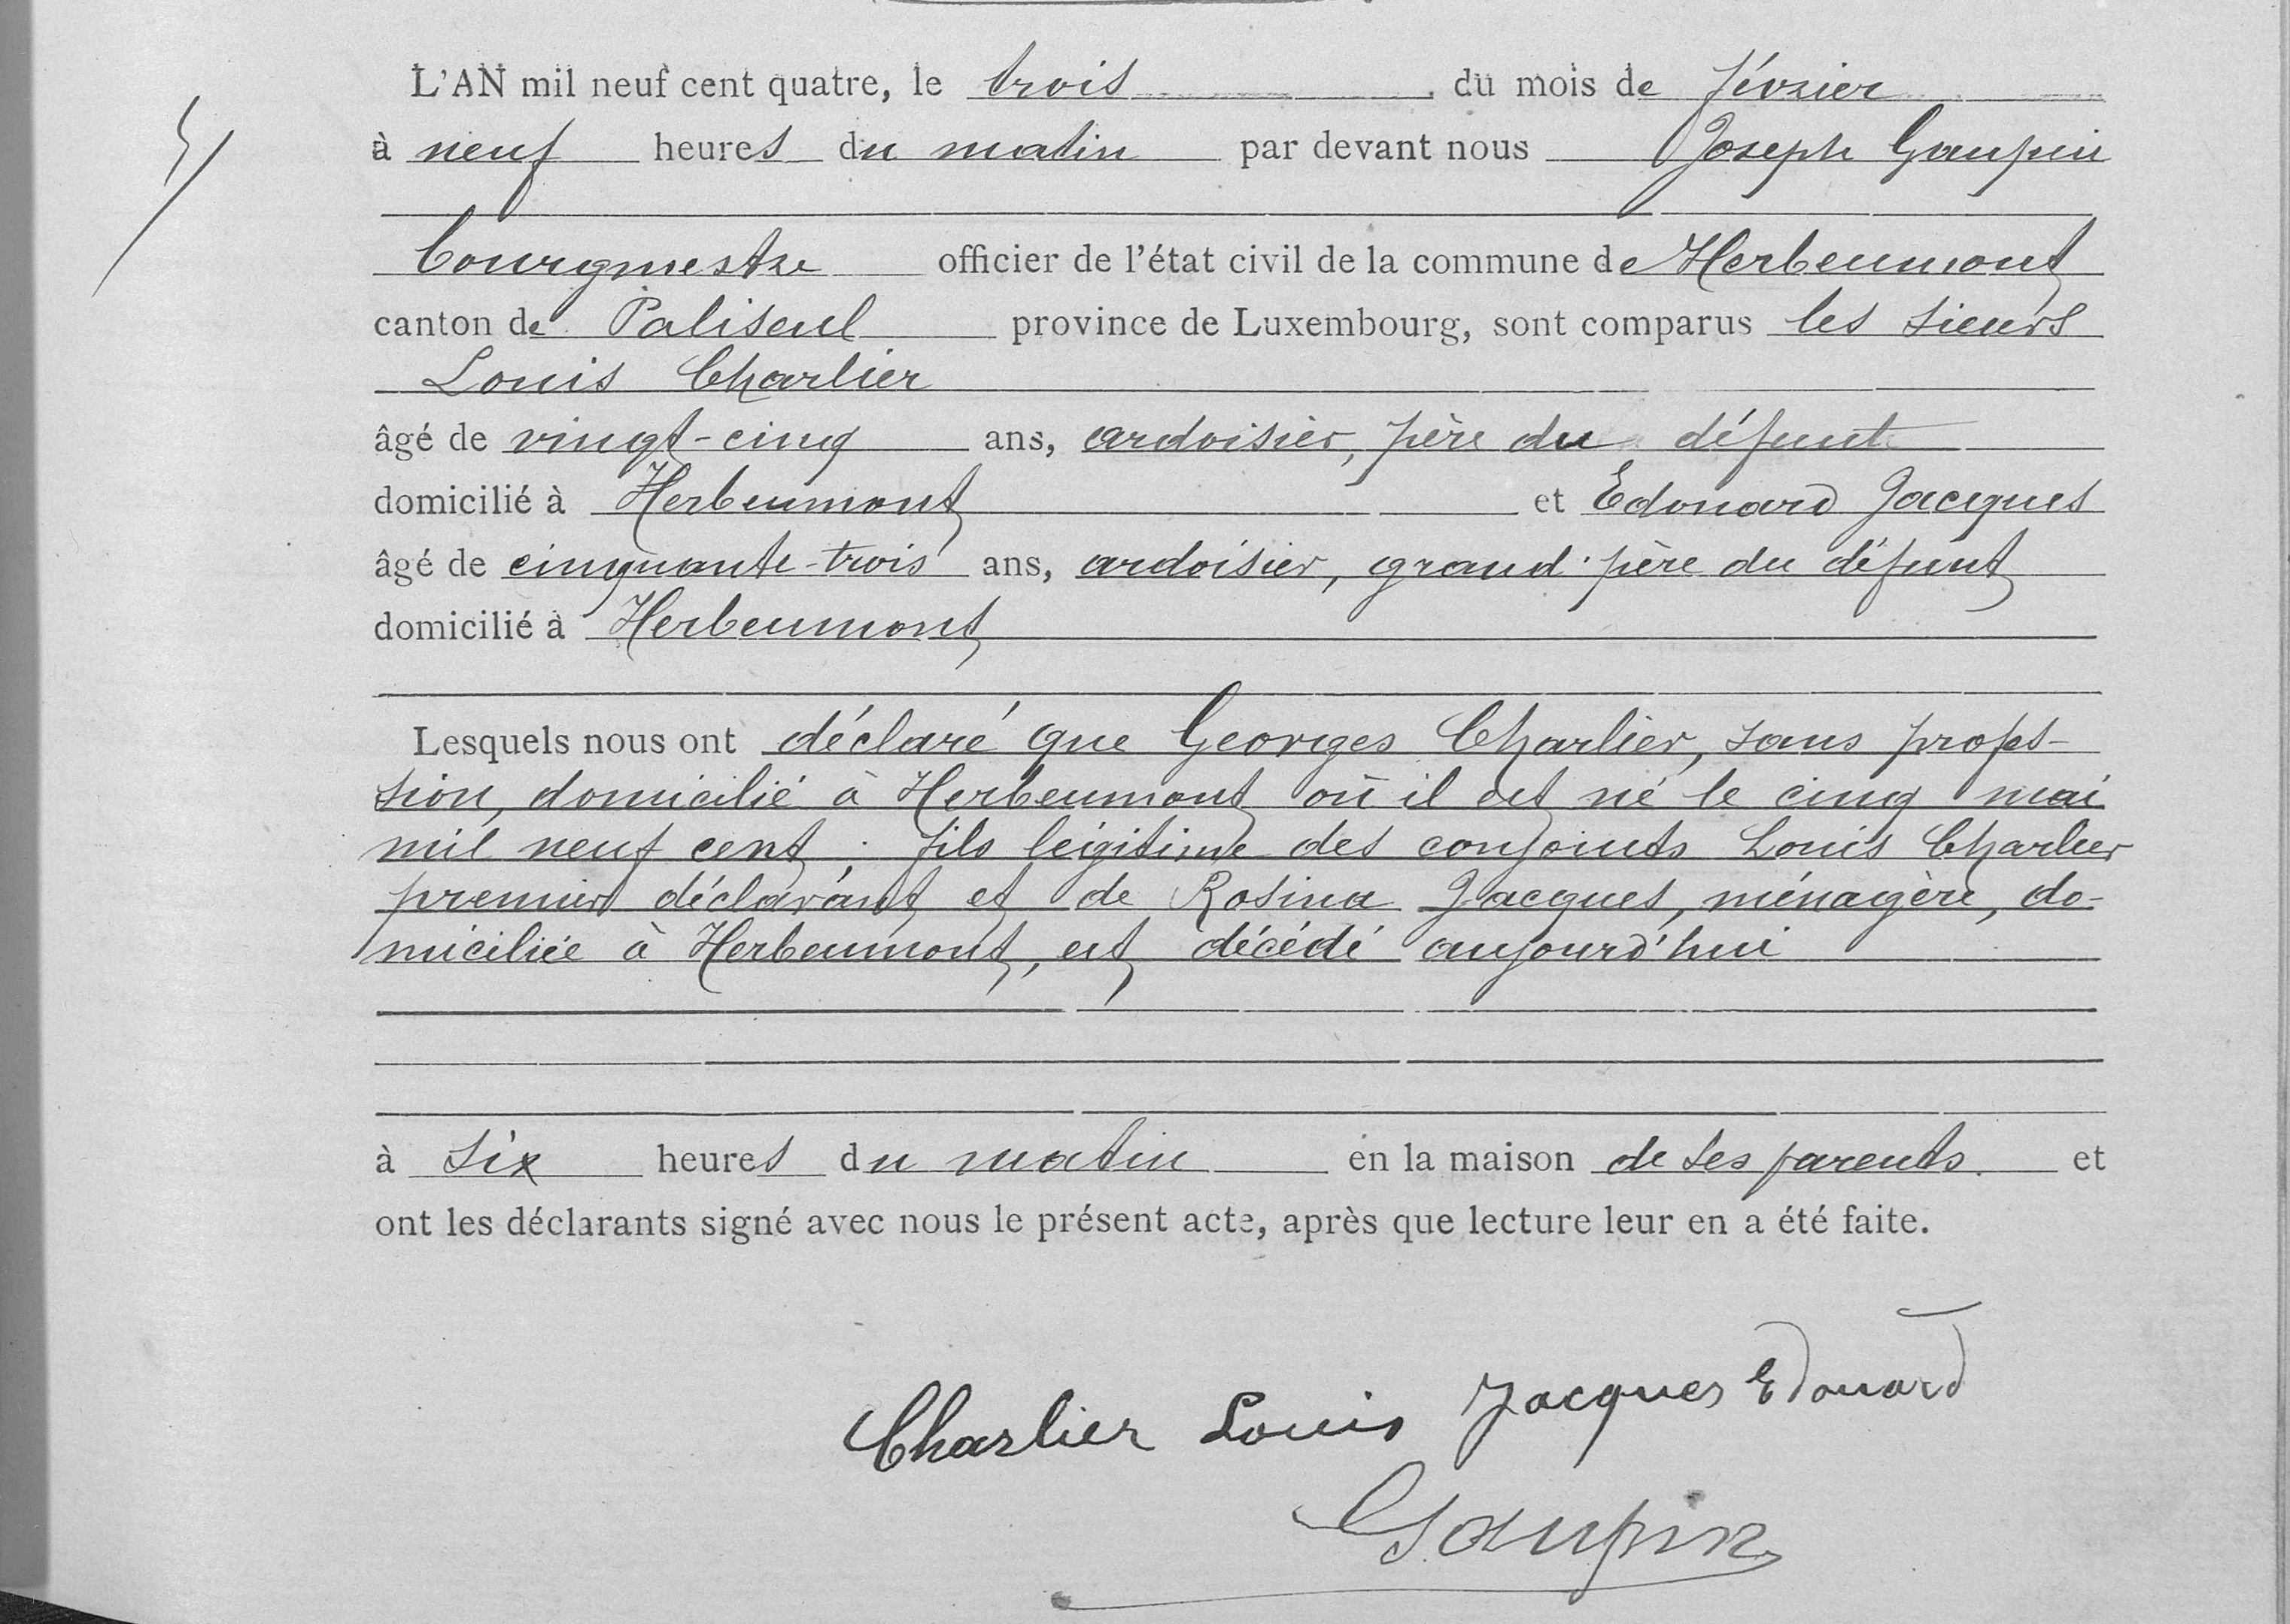 L'AN mil neuf cent quatre, le trois du mois de février
à neuf heures du matin par devant nous Joseph Gaupin
bourgmestre officier de l'état civil de la commune de Herbeumont
canton de Paliseul province de Luxembourg, sont comparus les sieurs
Louis Charlier
âgé de vingt-cinq ans, ardoisier, père du défunt
domicilié à Herbeumont et Edouard Jacques
âgé de cinquante-trois ans, ardoisier, grand-père du défunt
domicilié à Herbeumont
Lesquels nous ont déclaré que Georges Charlier, sans profes-
sion, domicilié à Herbeumont où il est né le cinq mai
mil neuf cent ; fils légitime des conjoints Louis Charlier
premier déclarant et de Rosina Jacques, ménagère, do-
miciliée à Herbeumont, est décédé aujourd'hui
à six heures du matin en la maison de ses parents. et
ont les déclarants signé avec nous le présent acte, après que lecture leur en a été faite.
Charlier Louis Jacques Edouard
Gaupin